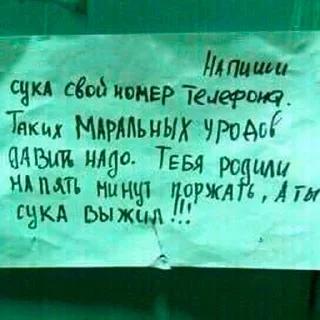 Напиши
сука свой номер телефона.
Таких МАРАЛЬНЫХ уродов
давить надо. Тебя родили
на пять минут поржать, а ты
сука выжил!!!